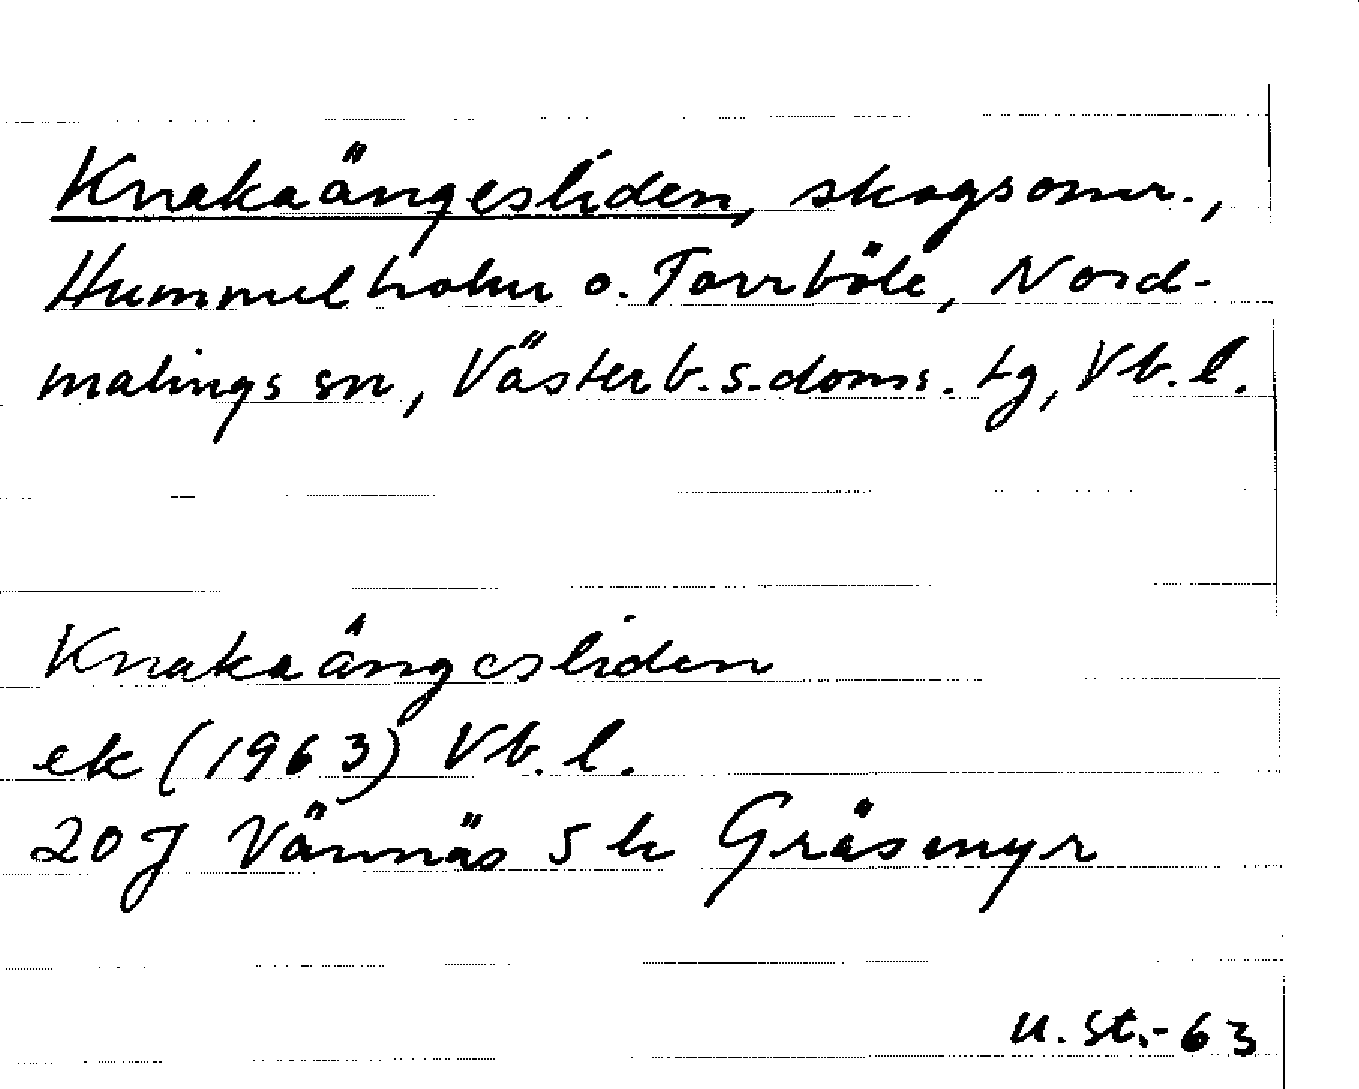 Knakaängesliden, skogsomr.,
Hummelholm o. Torrböle, Nord-
malings sn, Västerb. s. doms. tg, Vb. l.
Knakaängesliden
ek (1963) Vb. l.
20 J Vännäs 5 h Gräsmyr
U. St. -63